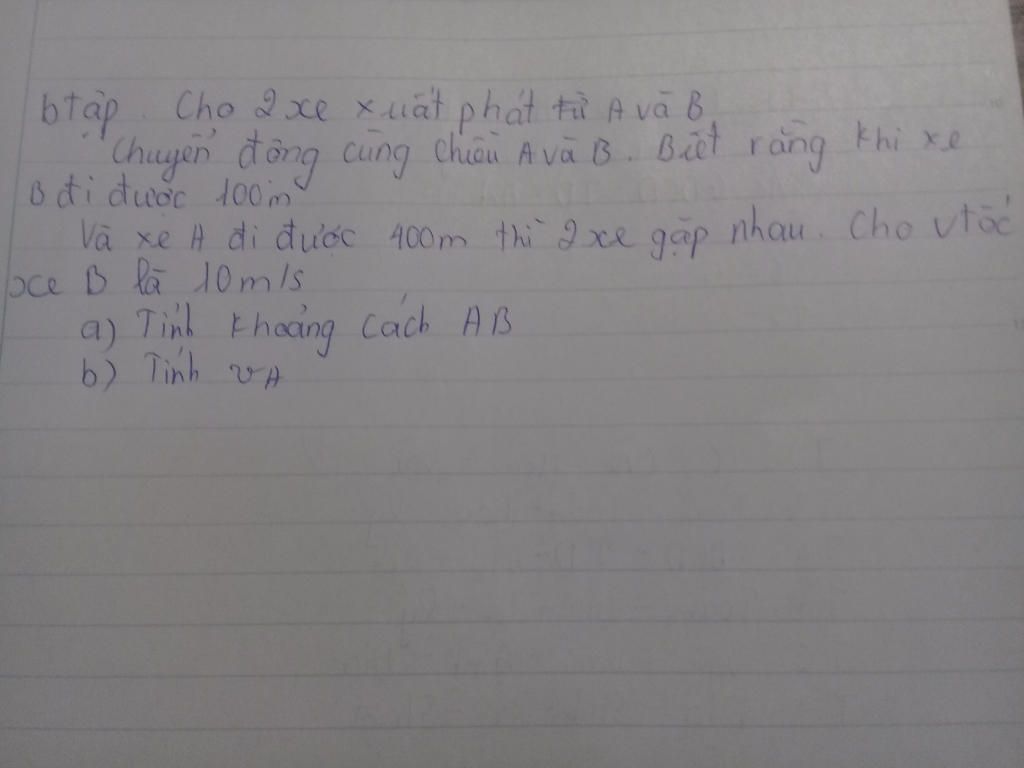 btập. Cho 2 xe xuất phát từ A và B
Chuyển động cùng chiều A và B. Biết rằng khi xe
B đi được 100m
Và xe A đi được 400m thì 2 xe gặp nhau. Cho vtốc
xe B là 10m/s
a) Tính khoảng cách AB
b) Tính vA